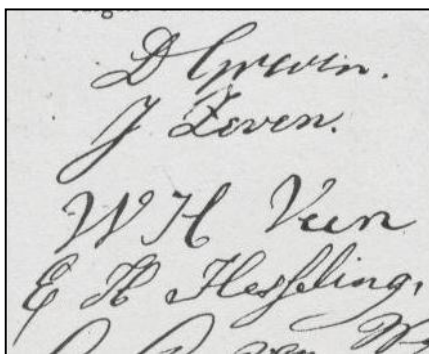 D Greven.
J Zeven.
W H Veen
E H Hesseling,